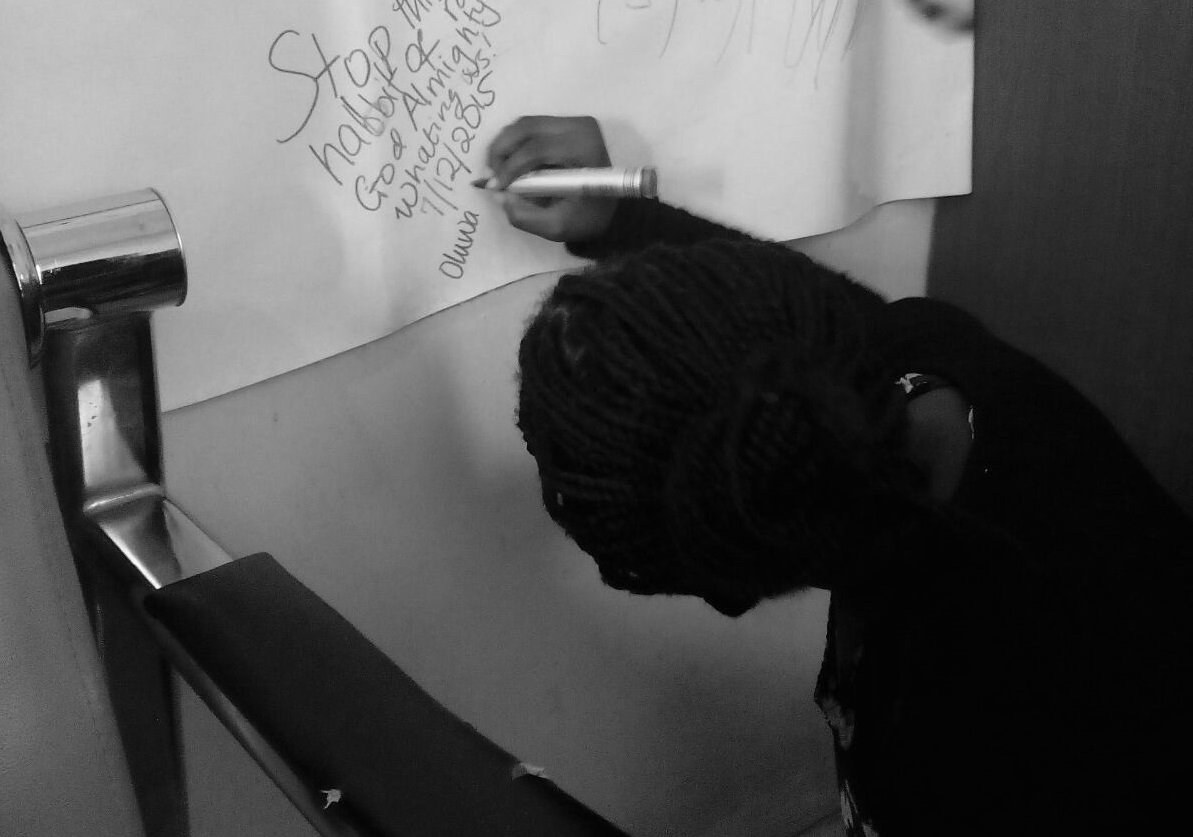 Stop this
habbit of
God Almighty
whating us!
7/12/2015
Oluwa